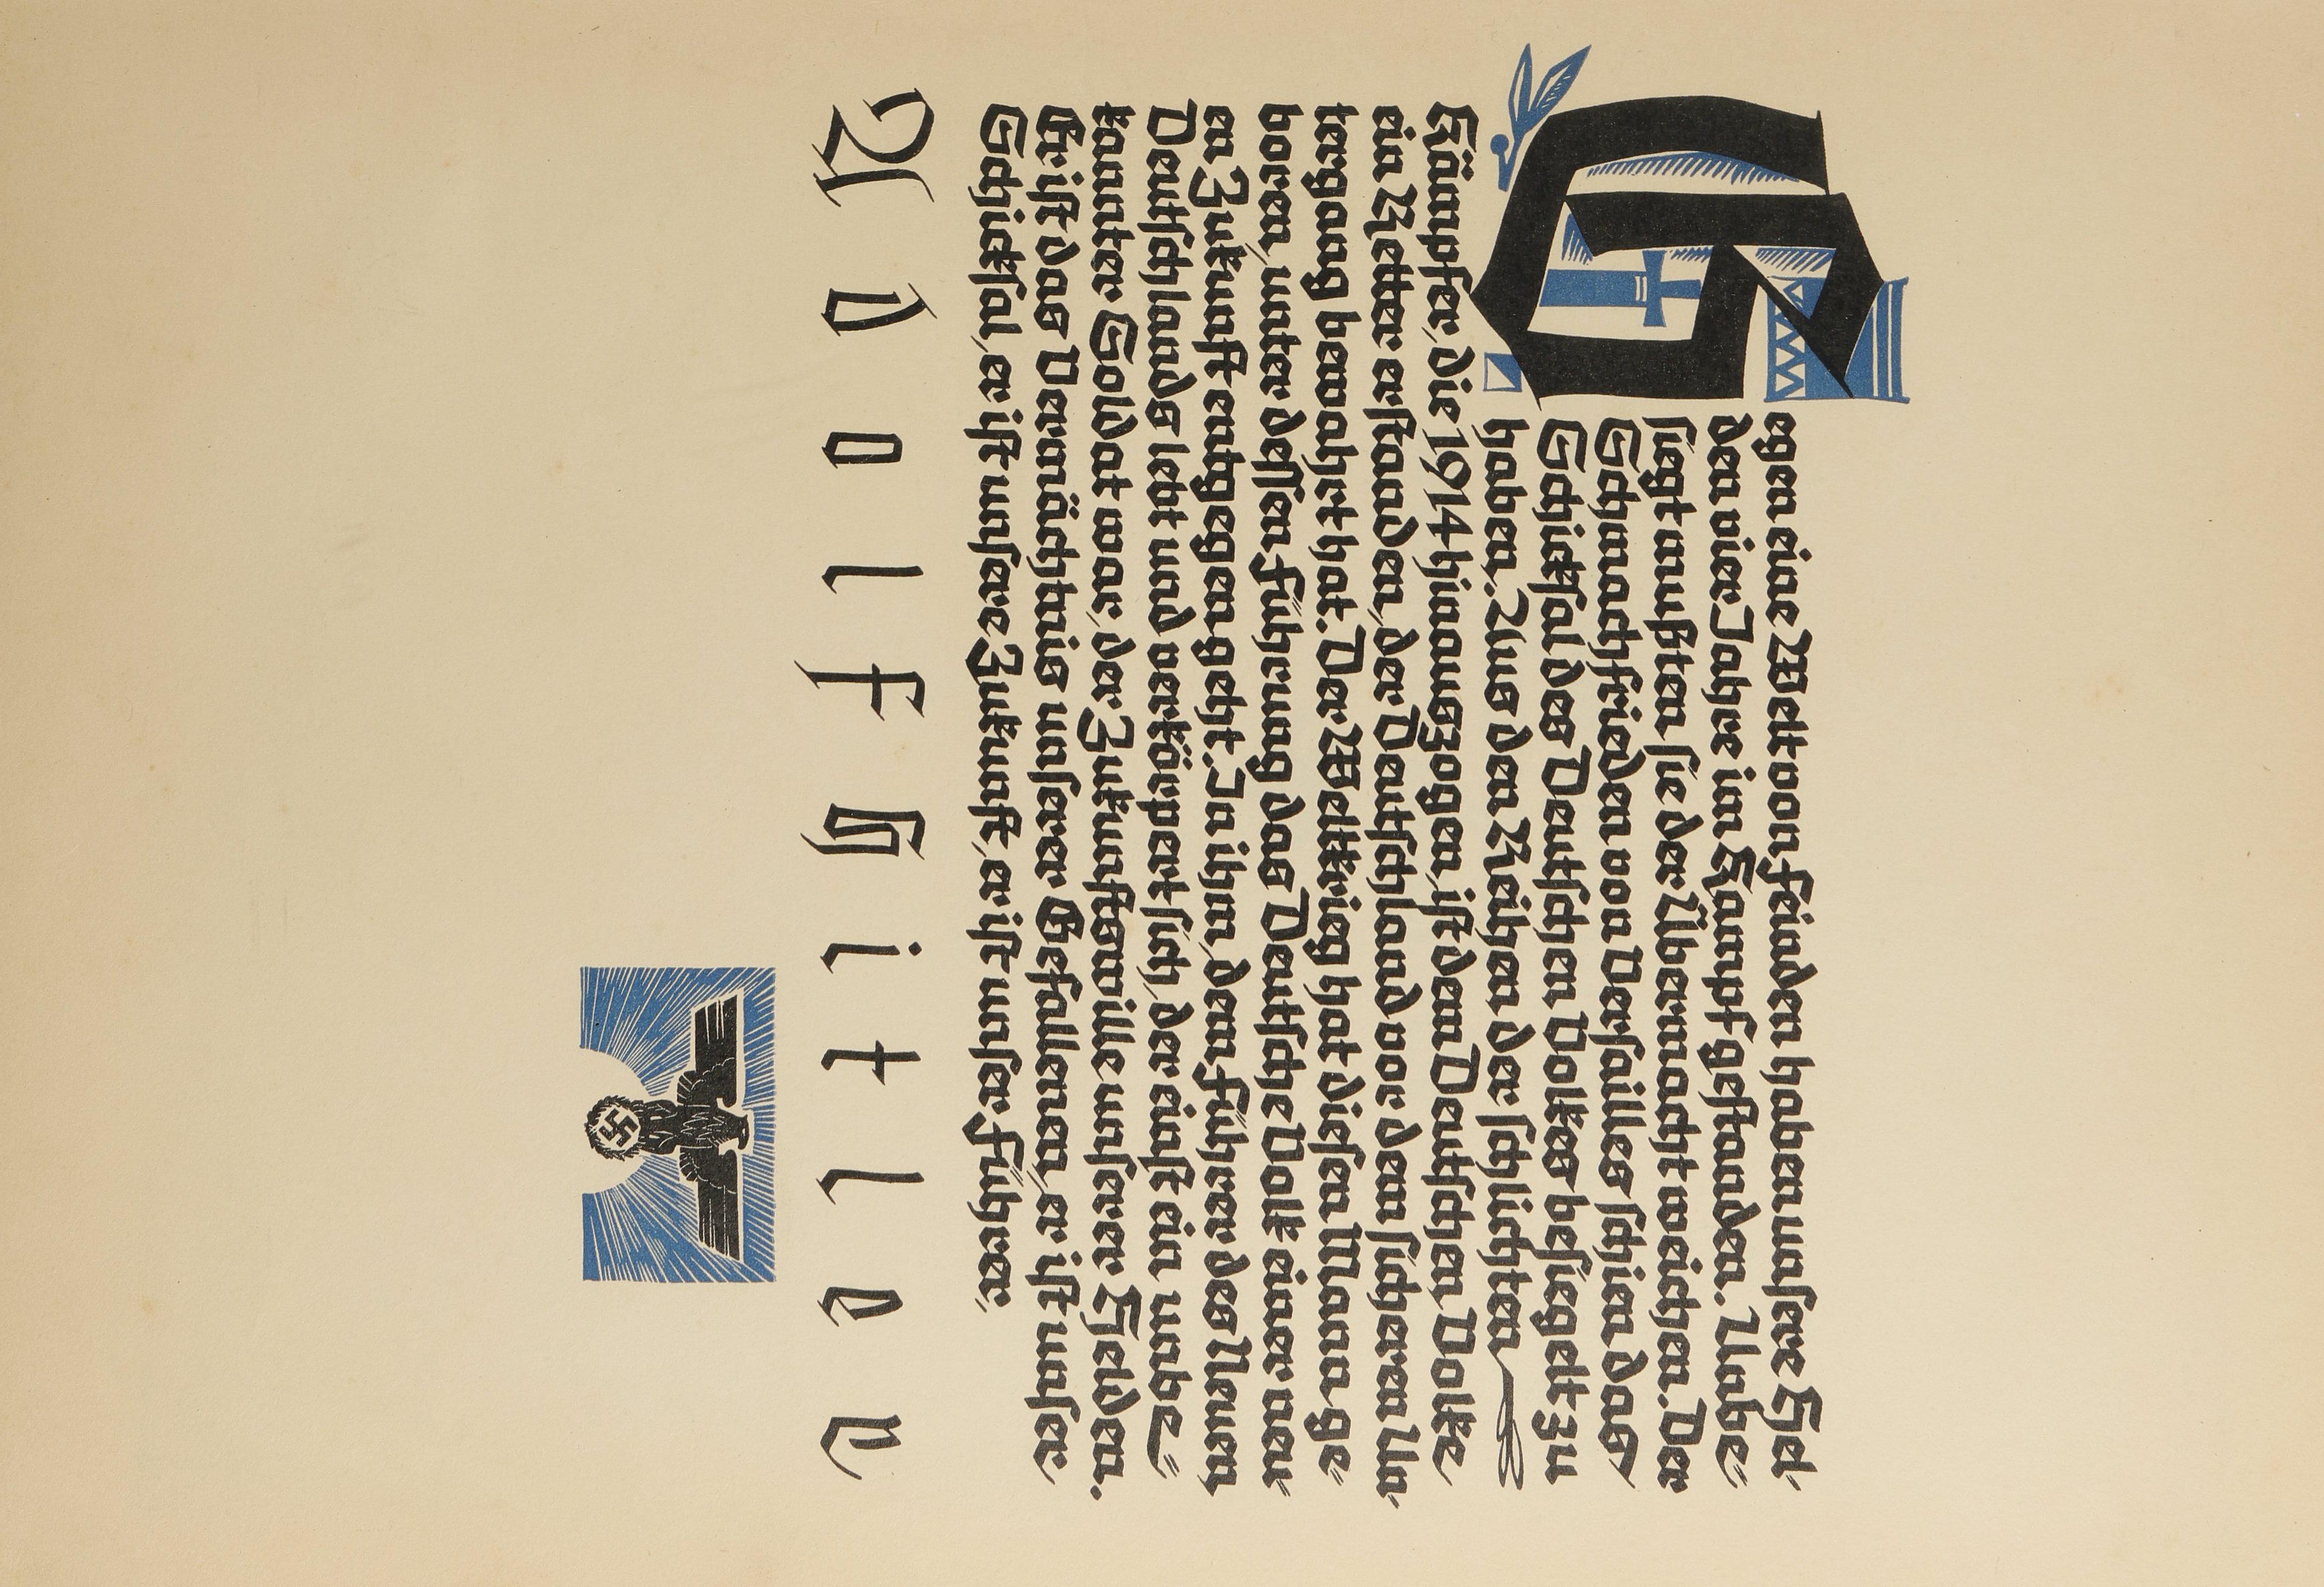 Gegen eine Welt von Feinden haben unsere Hel-
den vier Jahre im Kampf gestanden. Unbe-
siegt mußten sie der Übermacht weichen. Der
Schmachfrieden von Versailles schien das
Schicksal des Deutschen Volkes besiegelt zu
haben. Aus den Reihen der schlichten
Kämpfer, die 1914 hinauszogen, ist dem Deutschen Volke
ein Retter erstanden, der Deutschland vor dem sicheren Un-
tergang bewahrt hat. Der Weltkrieg hat diesen Mann ge-
boren, unter dessen Führung das Deutsche Volk einer neu-
en Zukunft entgegen geht. In ihm, dem Führer des Neuen
Deutschlands lebt und verkörpert sich, der einst ein unbe-
kannter Soldat war, der Zukunftswille unserer Helden.
Er ist das Vermächtnis unserer Gefallenen, er ist unser
Schicksal, er ist unsere Zukunft, er ist unser Führer
Adolf Hitler